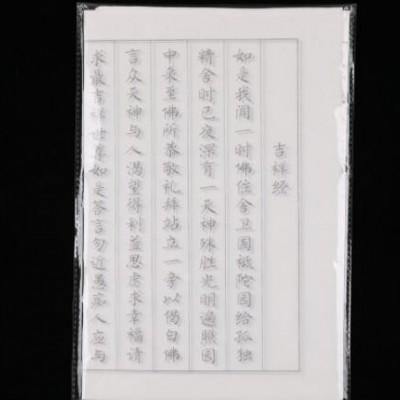 吉祥经
如是我闻一时佛住舍卫国祇陀园给孤独
精舍时已夜深有一天神殊胜光明遍照园
中来至佛所恭敬礼拜站立一旁以偈白佛
言众天神与人渴望得利益思虑求幸福请
求最吉祥世尊如是答言勿近愚痴人应与